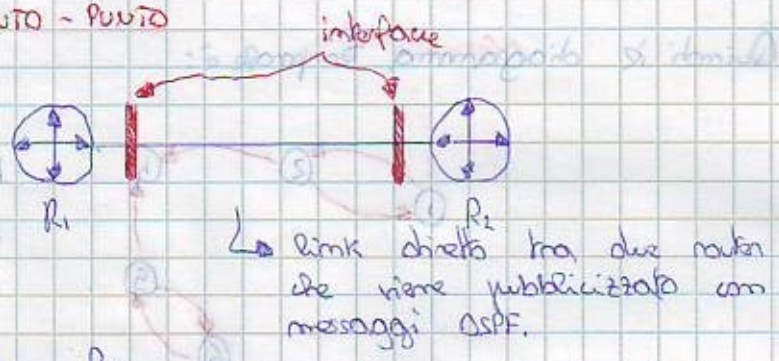 PUNTO - PUNTO
interfacce
R1
R2
link diretto tra due router
che viene pubblicizzato con
messaggi OSPF.